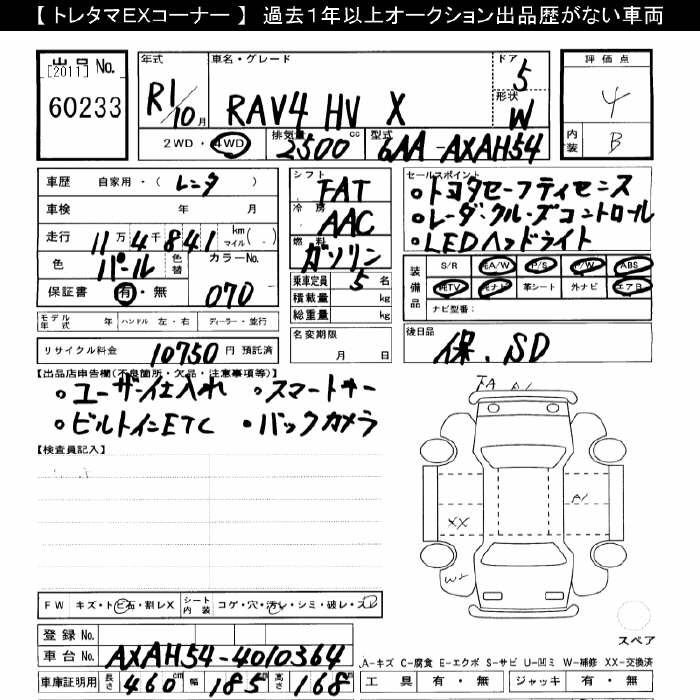 【 トレタマEXコーナー 】 過去1年以上オークション出品歴がない車両
出品 No.
[2011]
60233
年式
R1/10月
車名・グレード
RAV4 HV X
ドア
5
形状
W
評価点
4
内装
B
2WD・4WD
排気量 2500 cc
型式 6AA-AXAH54
車歴 自家用・( レンタ )
車検 年 月
走行 11万4千841 km マイル( )
色 パール 色替 カラーNo. 070
保証書 有・無
モデル年式 年 ハンドル 左・右 ディーラー・並行
リサイクル料金 10750 円 預託済
シフト
FAT
冷房
AAC
燃料
ガソリン
乗車定員 5 名
積載量 kg
総重量 kg
名変期限
月 日
セールスポイント
○トヨタセーフティセンス
○レーダークルーズコントロール
○LEDヘッドライト
装備品
S/R 純A/W P/S P/W ABS
純TV 純ナビ 革シート 外ナビ エアB
ナビ型番:
後日品
保、SD
【出品店申告欄(不良箇所・欠品・注意事項等)】
○ユーザー仕入れ ○スマートキー
○ビルトインETC ○バックカメラ
【検査員記入】
FA A1
A1
XX
W2
FW キズ・トビ石・割レX シート内装 コゲ・穴・汚レ・シミ・破レ・スレ
スペア
登録 No.
車台 No. AXAH54-4010364
A-キズ C-腐食 E-エクボ S-サビ U-凹ミ W-補修 XX-交換済
車庫証明用 長さ 460 cm 幅 185 cm 高さ 168 cm
工具 有・無 ジャッキ 有・無